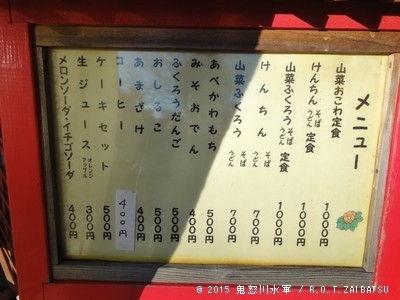 メニュー
山菜おこわ定食 1000円
けんちん そば うどん 定食 1000円
山菜ふくろう そば うどん 定食 1000円
けんちん そば うどん 700円
山菜ふくろう そば うどん 700円
あべかわもち 500円
みそおでん 400円
ふくろうだんご 500円
おしるこ 500円
あまざけ 400円
コーヒー 400円
ケーキセット 500円
生ジュース オレンジ アップル 300円
メロンソーダ・イチゴソーダ 400円
© 2015 鬼怒川水軍 / R.O.T.ZAIBATSU